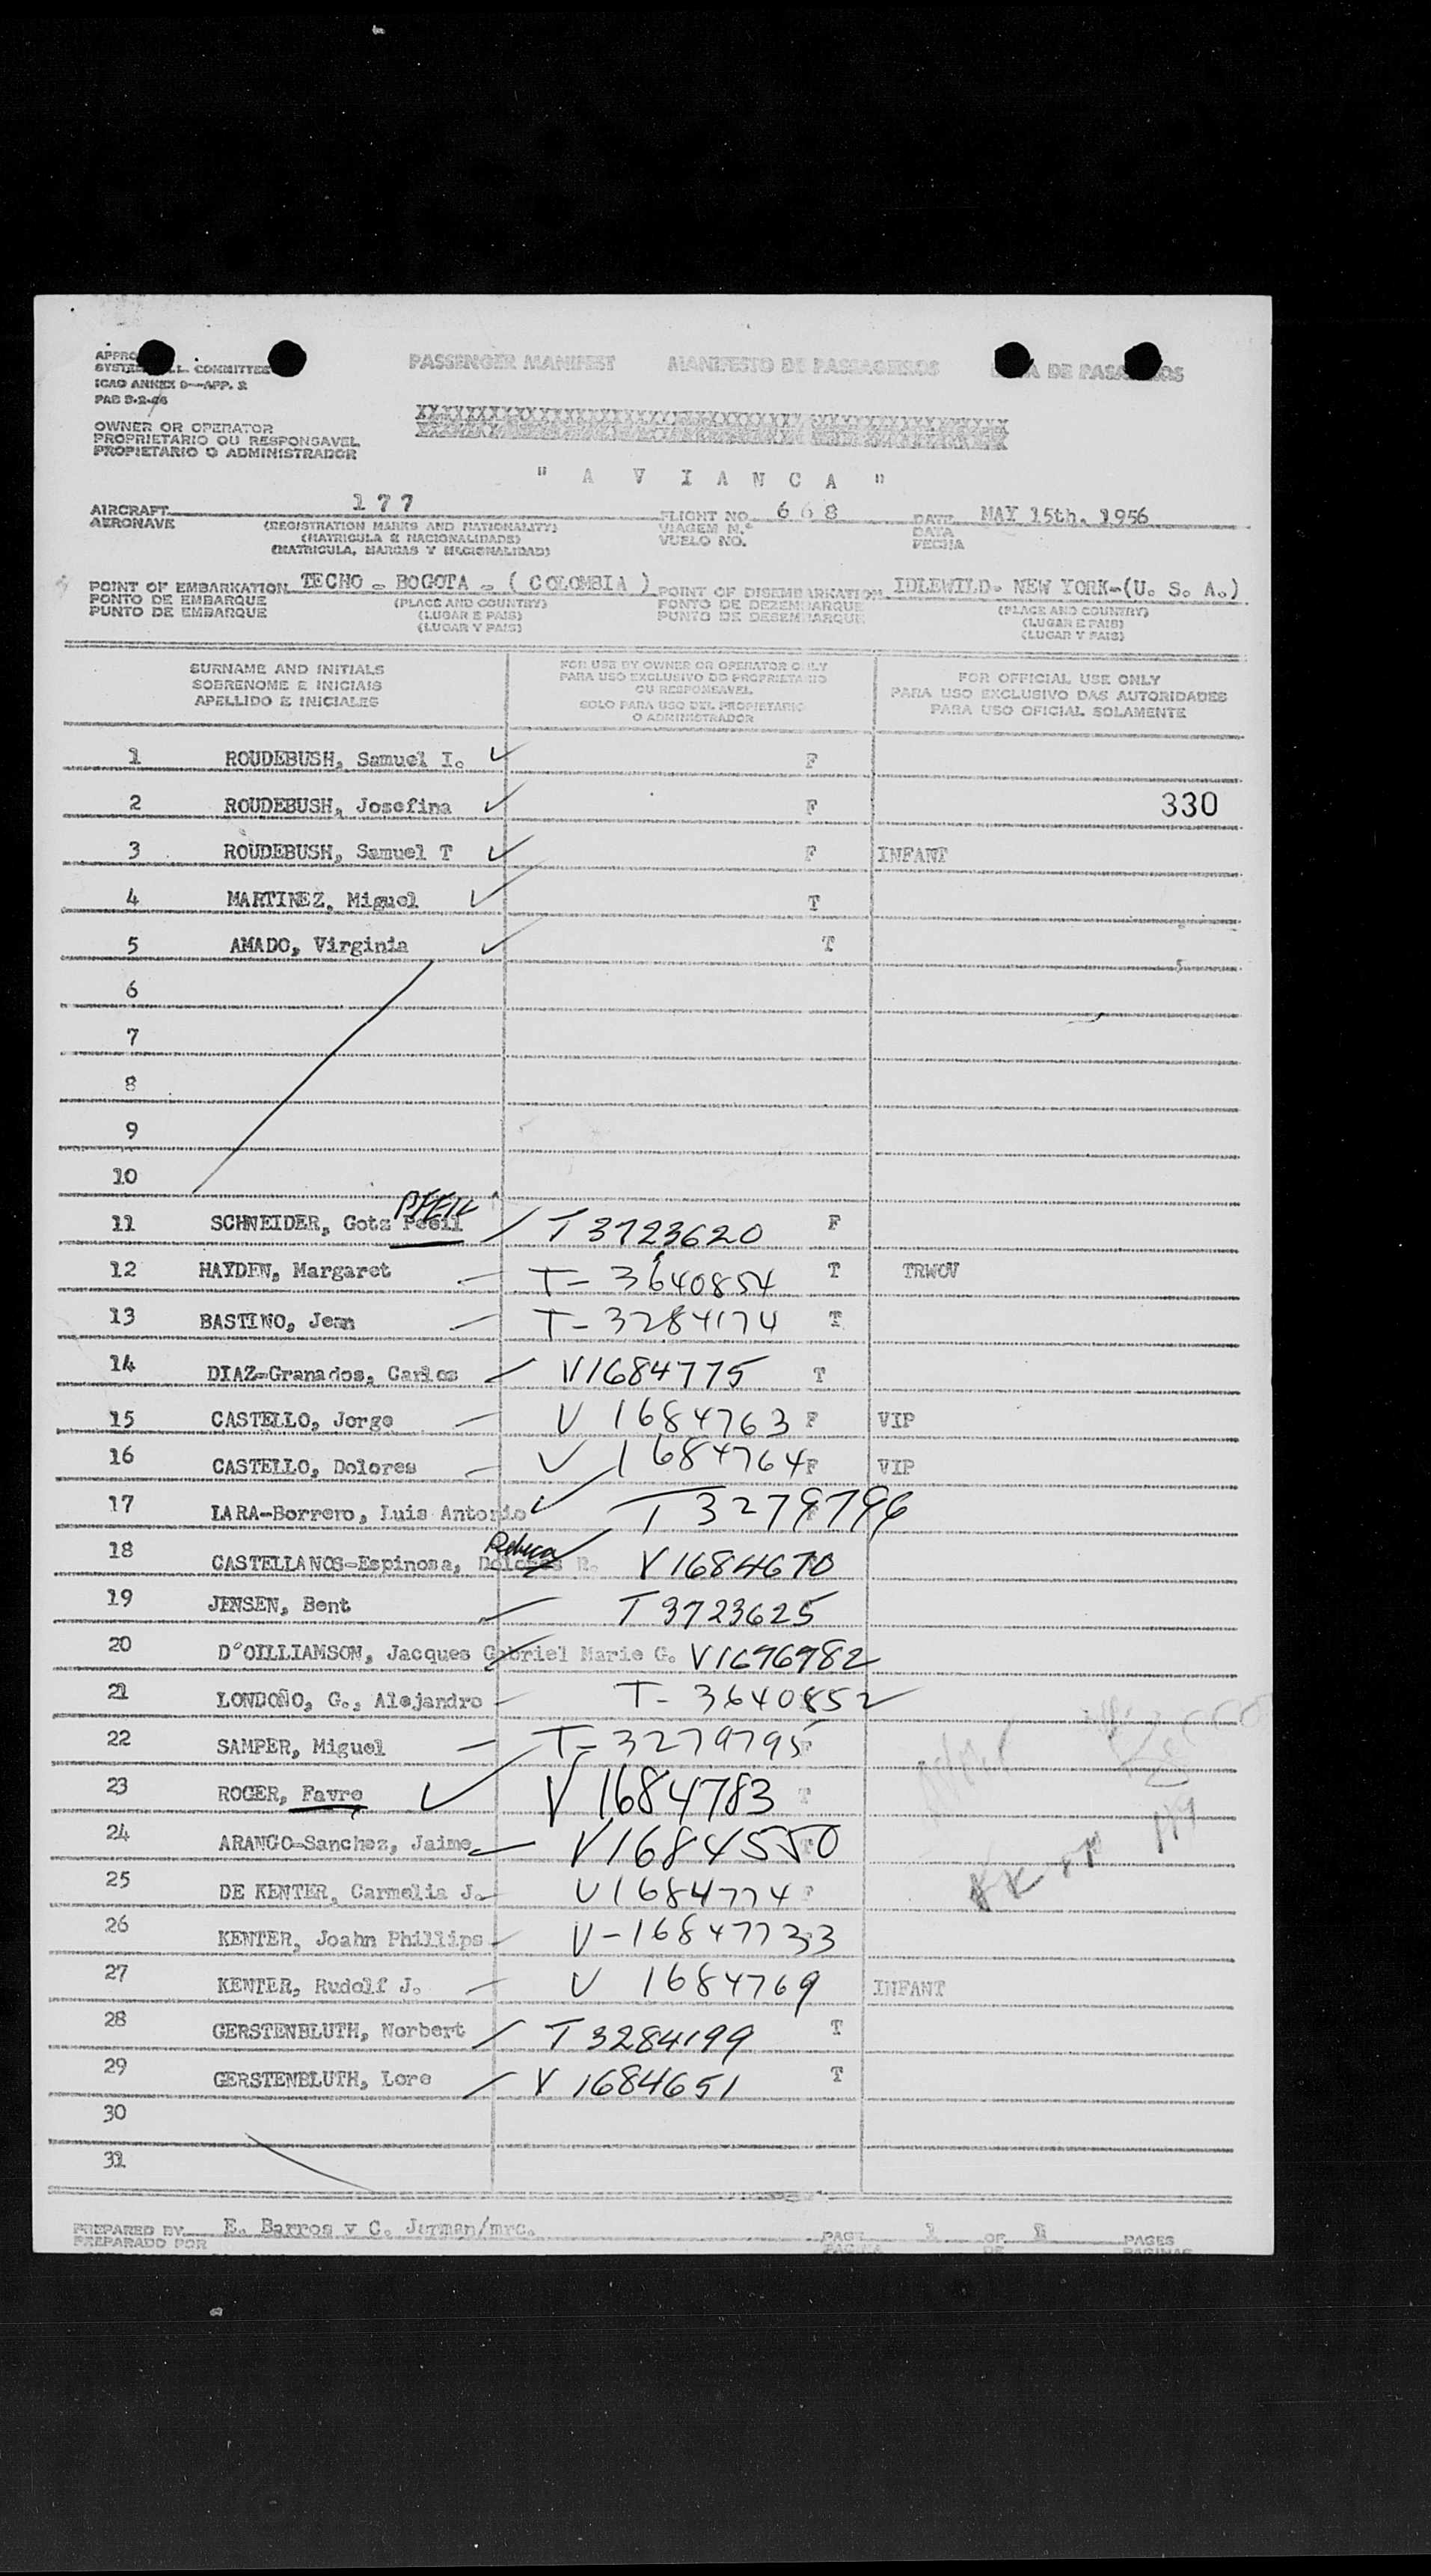 PASSENGER MANIFEST MANIFESTO DE PASSAGEIROS DE
COMMITTEE
ICAO ANNEX 9—APP. 2
OWNER OR OPERATOR
PROPRIETARIO OU RESPONSAVEL
PROPIETARIO O ADMINISTRADOR
" A V I A N C A "
AIRCRAFT 177 FLIGHT NO. 668 DATE MAY 15th. 1956
AERONAVE (REGISTRATION MARKS AND NATIONALITY) VIAGEM N.º DATA
(MATRICULA E NACIONALIDADE) VUELO NO. FECHA
(MATRICULA, MARCAS Y NACIONALIDAD)
POINT OF EMBARKATION TECHO - BOGOTA - ( COLOMBIA ) POINT OF DISEMBARKATION IDLEWILD- NEW YORK-(U. S. A.)
PONTO DE EMBARQUE (PLACE AND COUNTRY) PONTO DE DEZEMBARQUE (PLACE AND COUNTRY)
PUNTO DE EMBARQUE (LUGAR E PAIS) PUNTO DE DESEMBARQUE (LUGAR E PAIS)
(LUGAR Y PAIS) (LUGAR Y PAIS)
SURNAME AND INITIALS FOR USE BY OWNER OR OPERATOR ONLY FOR OFFICIAL USE ONLY
SOBRENOME E INICIAIS PARA USO EXCLUSIVO DO PROPRIETARIO PARA USO EXCLUSIVO DAS AUTORIDADES
APELLIDO E INICIALES OU RESPONSAVEL PARA USO OFICIAL SOLAMENTE
SOLO PARA USO DEL PROPIETARIO
O ADMINISTRADOR
1 ROUDEBUSH, Samuel I. F
2 ROUDEBUSH, Josefina F 330
3 ROUDEBUSH, Samuel T F INFANT
4 MARTINEZ, Miguel T
5 AMADO, Virginia T
6
7
8
9
10
PFEIL
11 SCHNEIDER, Gotz T 3723620 F
12 HAYDEN, Margaret T- 3640854 T TRWOV
13 BASTINO, Jean T- 3284174 T
14 DIAZ-Granados, Carlos V1684775 T
15 CASTELLO, Jorge V 1684763 F VIP
16 CASTELLO, Dolores V 1684764 F VIP
17 LARA-Borrero, Luis Antonio T 3279796
18 CASTELLANOS-Espinosa, Dolores R. V1684670
19 JENSEN, Bent T 3723625
20 D'OILLIAMSON, Jacques Gabriel Marie G. V1696982
21 LONDOÑO, G., Alejandro T- 3640852
22 SAMPER, Miguel T- 3279795
23 ROGER, Favre V 1684783 T
24 ARANGO-Sanchez, Jaime V1684550 T
25 DE KENTER, Carmelia J. V1684774 F
26 KENTER, Joahn Phillips V-16847733
27 KENTER, Rudolf J. V 1684769 INFANT
28 GERSTENBLUTH, Norbert T 3284199 T
29 GERSTENBLUTH, Lore V 1684651 T
30
31
PREPARED BY E. Barros y C. Jurman/mrc. PAGE 1 OF PAGES
PREPARADO POR